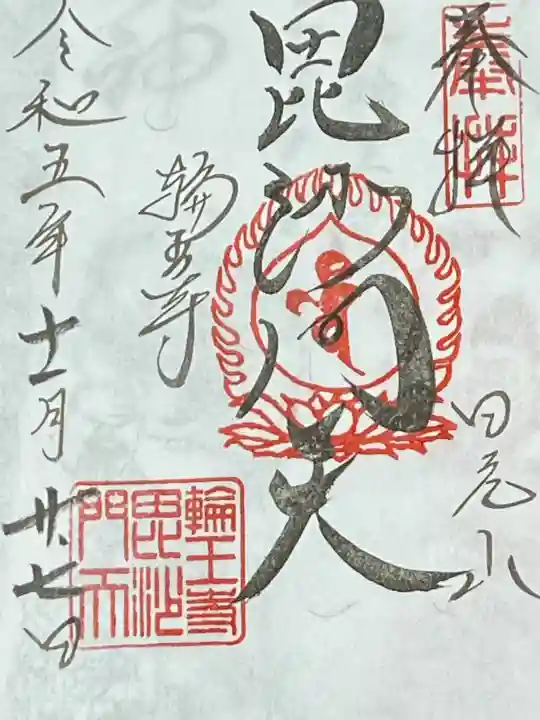 奉拝
奉拝
日光山
毘沙門天
輪王寺
輪王寺
毘沙
門天
令和五年十一月廿七日